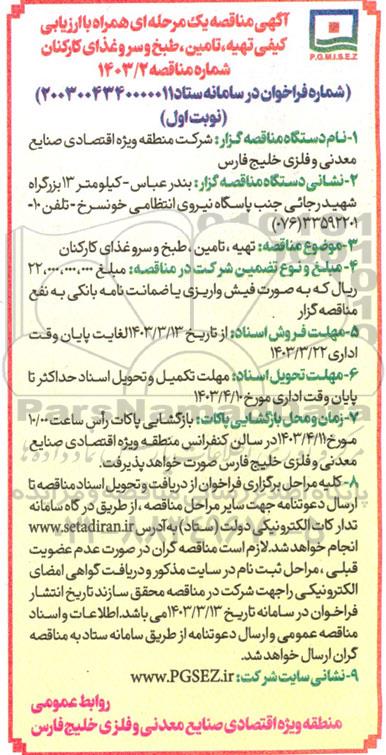 P.G.M.I.S.E.Z
آگهی مناقصه یک مرحله ای همراه با ارزیابی
کیفی تهیه، تامین، طبخ و سرو غذای کارکنان
شماره مناقصه ۱۴۰۳/۲
(شماره فراخوان در سامانه ستاد ۲۰۰۳۰۰۴۳۴۰۰۰۰۰۱۱)
(نوبت اول)
۱-نام دستگاه مناقصه گزار: شرکت منطقه ویژه اقتصادی صنایع
معدنی و فلزی خلیج فارس
۲-نشانی دستگاه مناقصه گزار: بندر عباس - کیلومتر ۱۳ بزرگراه
شهید رجائی جنب پاسگاه نیروی انتظامی خونسرخ - تلفن ۱۰-
۳۳۵۹۲۲۰۱(۰۷۶)
۳-موضوع مناقصه: تهیه، تامین، طبخ و سرو غذای کارکنان
۴-مبلغ و نوع تضمین شرکت در مناقصه: مبلغ ۲۲,۰۰۰,۰۰۰,۰۰۰
ریال که به صورت فیش واریزی یا ضمانت نامه بانکی به نفع
مناقصه گزار
۵-مهلت فروش اسناد: از تاریخ ۱۴۰۳/۳/۱۳ لغایت پایان وقت
اداری ۱۴۰۳/۳/۲۲
۶-مهلت تحویل اسناد: مهلت تکمیل و تحویل اسناد حداکثر تا
پایان وقت اداری مورخ ۱۴۰۳/۴/۱۰
۷-زمان و محل بازگشایی پاکات: بازگشایی پاکات رأس ساعت ۱۰/۰۰
مورخ ۱۴۰۳/۴/۱۱ در سالن کنفرانس منطقه ویژه اقتصادی صنایع
معدنی و فلزی خلیج فارس صورت خواهد پذیرفت.
۸-کلیه مراحل برگزاری فراخوان از دریافت و تحویل اسناد مناقصه تا
ارسال دعوتنامه جهت سایر مراحل مناقصه، از طریق درگاه سامانه
تدارکات الکترونیکی دولت (ستاد) به آدرس www.setadiran.ir
انجام خواهد شد. لازم است مناقصه گران در صورت عدم عضویت
قبلی، مراحل ثبت نام در سایت مذکور و دریافت گواهی امضای
الکترونیکی را جهت شرکت در مناقصه محقق سازند تاریخ انتشار
فراخوان در سامانه تاریخ ۱۴۰۳/۳/۱۳ می باشد. اطلاعات و اسناد
مناقصه عمومی و ارسال دعوتنامه از طریق سامانه ستاد به مناقصه
گران ارسال خواهد شد.
۹-نشانی سایت شرکت: www.PGSEZ.ir
روابط عمومی
منطقه ویژه اقتصادی صنایع معدنی و فلزی خلیج فارس